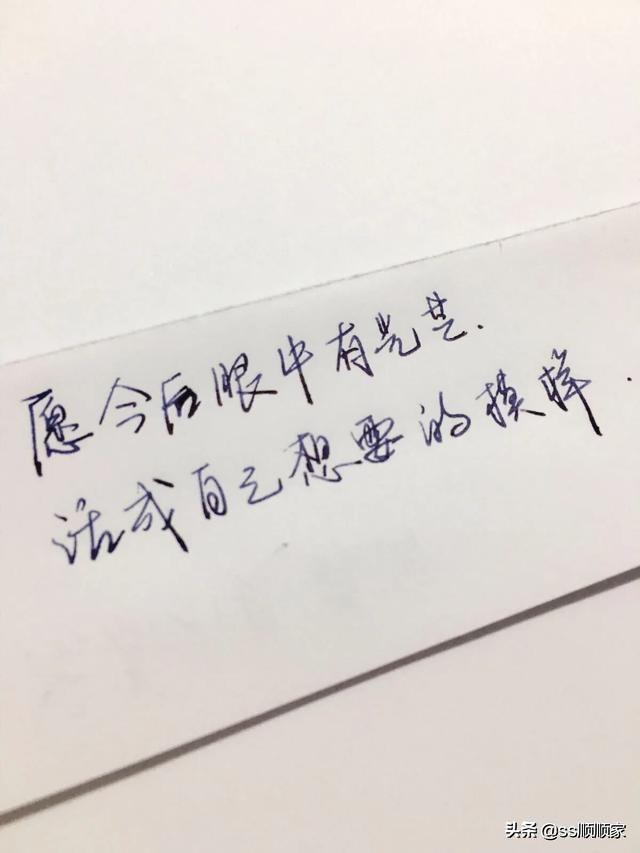 愿今后眼中有光芒.
活成自己想要的模样.
头条 @ss顺顺家